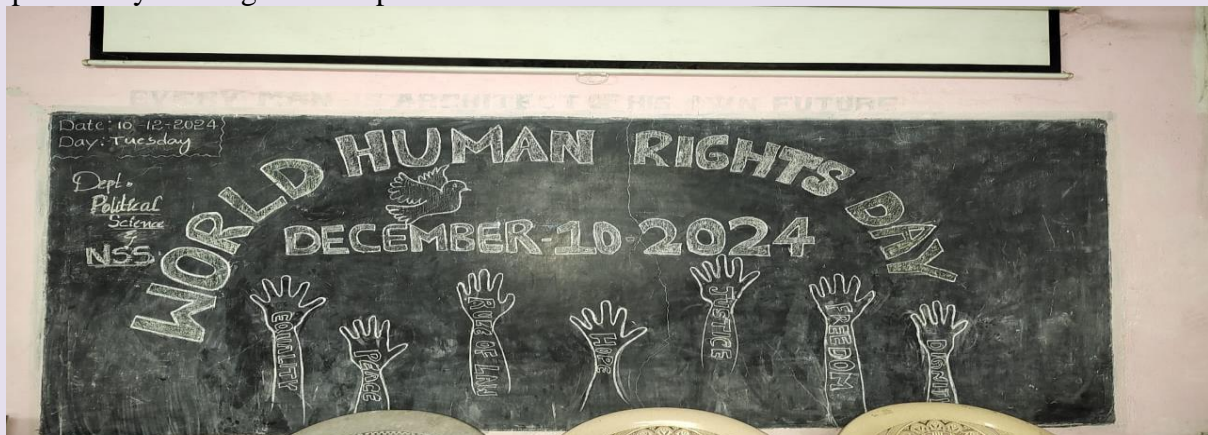 EVERY MAN ARCHITECT OF HIS OWN FUTURE
Date: 10-12-2024
Day: Tuesday
Dept.
Political
Science
&
NSS.
WORLD HUMAN RIGHTS DAY
DECEMBER-10-2024
EQUALITY
PEACE
RULE OF LAW
HOPE
JUSTICE
FREEDOM
DIGNITY